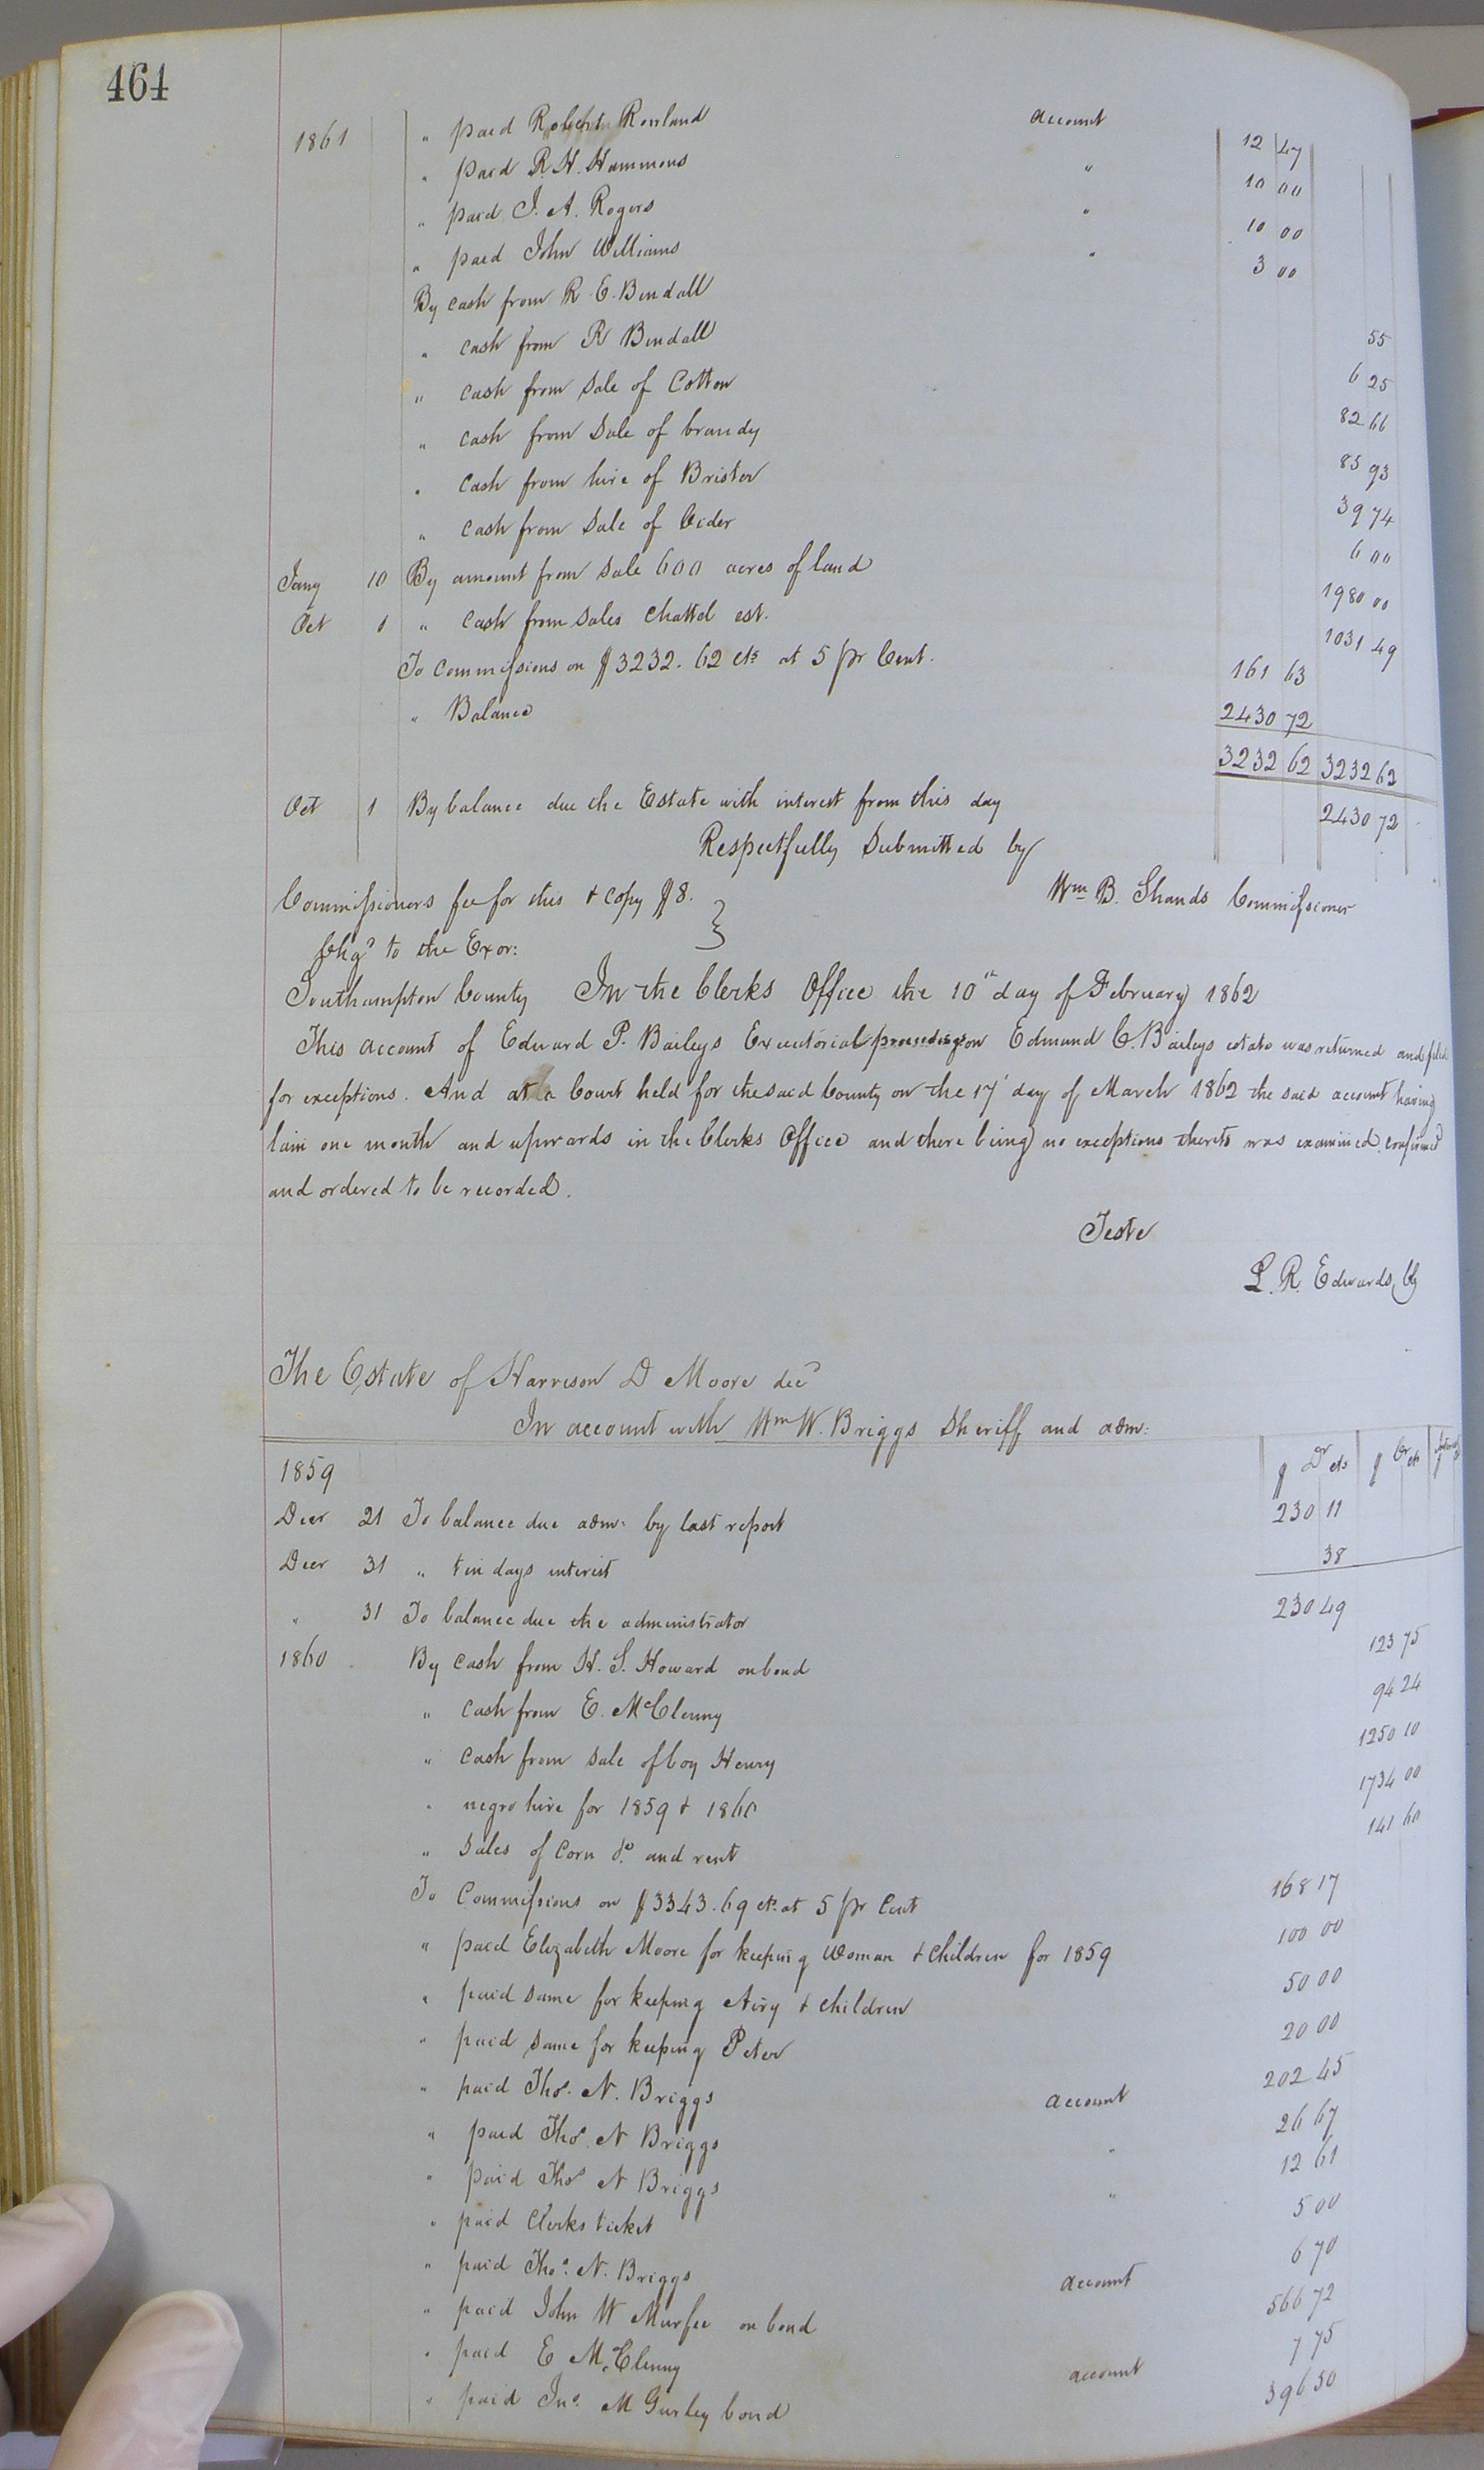 464
1861 " paid Robert Rowland account 12 47
" paid R. H. Hammons " 10 00
" paid J. A. Rogers " 10 00
" paid John Williams " 3 00
By cash from R. E. Bendall 55
" cash from R Bendall 6 25
" cash from sale of Cotton 82 66
" cash from sale of brandy 85 93
" cash from hire of Brister 39 74
" cash from sale of Cider 6 00
Jany 10 By amount from sale 600 acres of land 1980 00
Oct 1 " cash from sales chattel est. 1031 49
To commissions on $3232.62 cts at 5 pr Cent. 161 63
" Balance 2430 72
3232 62 3232 62
Oct 1 By balance due the Estate with interest from this day 2430 72
Respectfully submitted by
Wm B. Shands Commissioner
Commissioners fee for this & copy $8. }
Chgd to the Exor:
Southampton County In the Clerks Office the 10th day of February 1862
This account of Edward P. Baileys Executorial proceedings on Edmund C. Baileys estate was returned and filed
for exceptions. And at a Court held for the said County on the 17' day of March 1862 the said account having
lain one month and upwards in the Clerks Office and there being no exceptions thereto was examined, confirmed
and ordered to be recorded.
Teste
L. R. Edwards, Clk
The Estate of Harrison D Moore decd
In account with Wm W. Briggs Sheriff and adm:
$ Dr cts $ Cr cts
1859
Decr 21 To balance due adm: by last report 230 11
Decr 31 " ten days interest 38
" 31 To balance due the administrator 230 49
1860 By cash from H. S. Howard on bond 123 75
" cash from E. McClenny 94 24
" cash from sale of boy Henry 1250 10
" negro hire for 1859 & 1860 1734 00
" sales of corn &c. and rent 141 60
To Commissions on $3343.69 cts at 5 pr Cent 168 17
" paid Elizabeth Moore for keeping woman & children for 1859 100 00
" paid same for keeping Airy & children 50 00
" paid same for keeping Peter 20 00
" paid Thos. N. Briggs account 202 45
" paid Thos. N Briggs " 26 67
" paid Thos N Briggs " 12 61
" paid Clerks ticket 5 00
" paid Thos. N. Briggs account 6 70
" paid John W Murfee on bond 566 72
" paid E McClenny account 7 75
" paid Jno. M Gurley bond 396 50